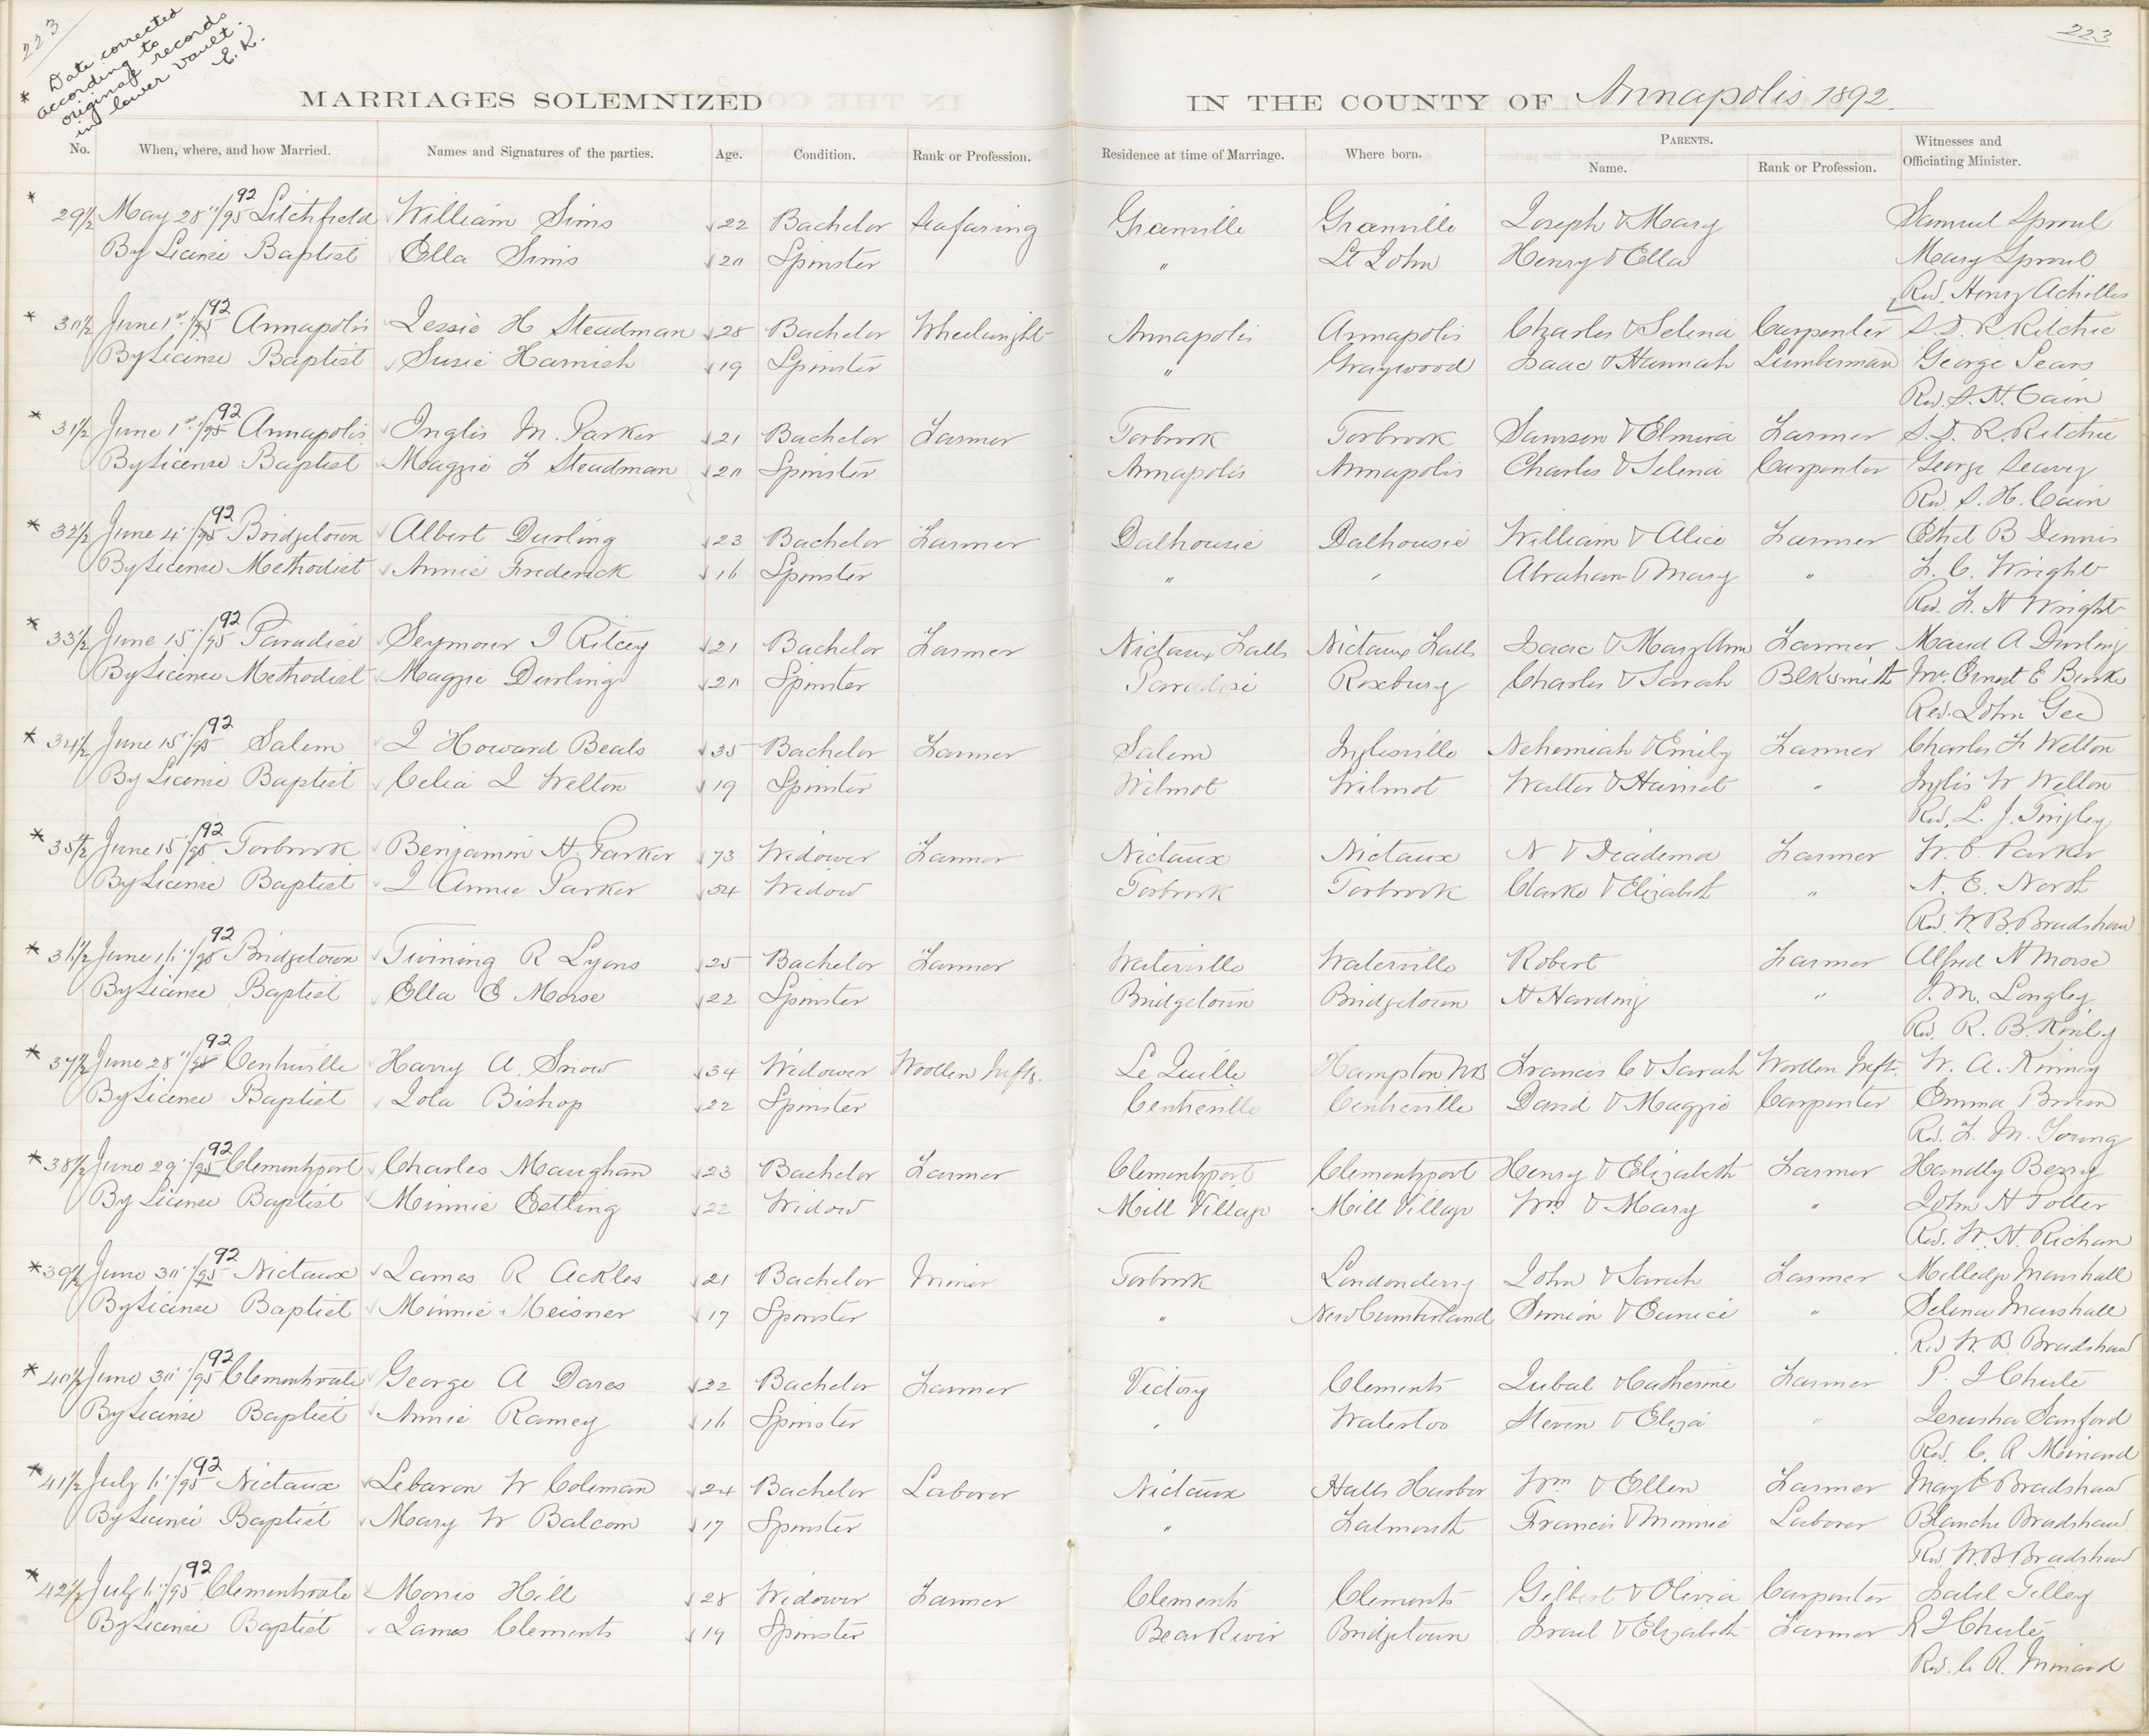 223
* Date corrected
according to
original records
in lower vault.
E.K.
223
MARRIAGES SOLEMNIZED IN THE COUNTY OF Annapolis 1892.
No. When, where, and how Married. Names and Signatures of the parties. Age. Condition. Rank or Profession. Residence at time of Marriage. Where born. PARENTS. Name. Rank or Profession. Witnesses and Officiating Minister.
* 29½ May 28"/95 92 Litchfield William Sims 22 Bachelor Seafaring Granville Granville Joseph & Mary Samuel Sproul
By License Baptist Ella Sims 20 Spinster " St John Henry & Ella Mary Sproul
Rev. Henry Achilles
* 30½ June 1st/95 92 Annapolis Jessie H Steadman 28 Bachelor Wheelwright Annapolis Annapolis Charles & Selena Carpenter S. D. R. Ritchie
By License Baptist Susie Harnish 19 Spinster " Graywood Isaac & Hannah Lumberman George Sears
Rev. S. H. Cain
* 31½ June 1st/95 92 Annapolis Inglis M. Parker 21 Bachelor Farmer Torbrook Torbrook Samson & Elmira Farmer S. D. R. Ritchie
By License Baptist Maggie F Steadman 20 Spinster Annapolis Annapolis Charles & Selena Carpenter George
Rev S. H. Cain
* 32½ June 4"/95 92 Bridgetown Albert Durling 23 Bachelor Farmer Dalhousie Dalhousie William & Alice Farmer Ethel B Dennis
By License Methodist Annie Frederick 16 Spinster " " Abraham & Mary " F. C. Wright
Rev. F. H Wright
* 33½ June 15"/95 92 Paradise Seymour I Ritcey 21 Bachelor Farmer Nictaux Falls Nictaux Falls Isaac & Mary Ann Farmer Maud A Durling
By License Methodist Maggie Durling 20 Spinster Paradise Roxbury Charles & Sarah Blksmith Mrs Ernest E Burke
Rev. John Gee
* 34½ June 15"/95 92 Salem J Howard Beals 35 Bachelor Farmer Salem Inglesville Nehemiah & Emily Farmer Charles F Welton
By License Baptist Celia J Welton 19 Spinster Wilmot Wilmot Walter & Harriet " Inglis W Welton
Rev. L. J. Tingley
* 35½ June 15"/95 92 Torbrook Benjamin H. Parker 73 Widower Farmer Nictaux Nictaux N & Diadema Farmer W. C. Parker
By License Baptist J Annie Parker 54 Widow Torbrook Torbrook Clarke & Elizabeth " N. E. North
Rev. W. B. Bradshaw
* 36½ June 16"/95 92 Bridgetown Twining R Lyons 25 Bachelor Farmer Waterville Waterville Robert Farmer Alfred H Morse
By License Baptist Ella E Morse 22 Spinster Bridgetown Bridgetown H Harding " J. M. Longley
Rev R. B. Kinley
* 37½ June 28"/95 92 Centreville Harry A. Snow 34 Widower Woollen Mfr. Le Quille Hampton NB Francis C & Sarah Woollen Mfr. W. A. Kinney
By License Baptist Lola Bishop 22 Spinster Centreville Centreville David & Maggie Carpenter Emma Brown
Rev. F. M. Young
* 38½ June 29"/95 92 Clementsport Charles Maughan 23 Bachelor Farmer Clementsport Clementsport Henry & Elizabeth Farmer Handly Berry
By License Baptist Minnie Estling 22 Widow Mill Village Mill Village Wm & Mary " John H Potter
Rev. W. H. Richan
* 39½ June 30"/95 92 Nictaux James R Ackles 21 Bachelor Miner Torbrook Londonderry John & Sarah Farmer Milledge Marshall
By License Baptist Minnie Meisner 17 Spinster " New Cumberland Simeon & Eunice " Selena Marshall
Rev W. B. Bradshaw
* 40½ June 30"/95 92 Clementsvale George A Dares 22 Bachelor Farmer Victory Clements Jubal & Catherine Farmer P. J Chute
By License Baptist Annie Ramey 16 Spinster " Waterloo Steven & Eliza " Jerusha Sanford
Rev. C. R Minard
* 41½ July 6"/95 92 Nictaux Lebaron W Coleman 24 Bachelor Laborer Nictaux Halls Harbor Wm & Ellen Farmer May E Bradshaw
By License Baptist Mary W Balcom 17 Spinster " Falmouth Francis & Minnie Laborer Blanche Bradshaw
Rev. W. B Bradshaw
* 42½ July 6"/95 92 Clementsvale Morris Hill 28 Widower Farmer Clements Clements Gilbert & Olivia Carpenter Tilley
By License Baptist James Clements 19 Spinster Bear River Bridgetown Israel & Elizabeth Farmer R J Chute
Rev. C. R. Minard